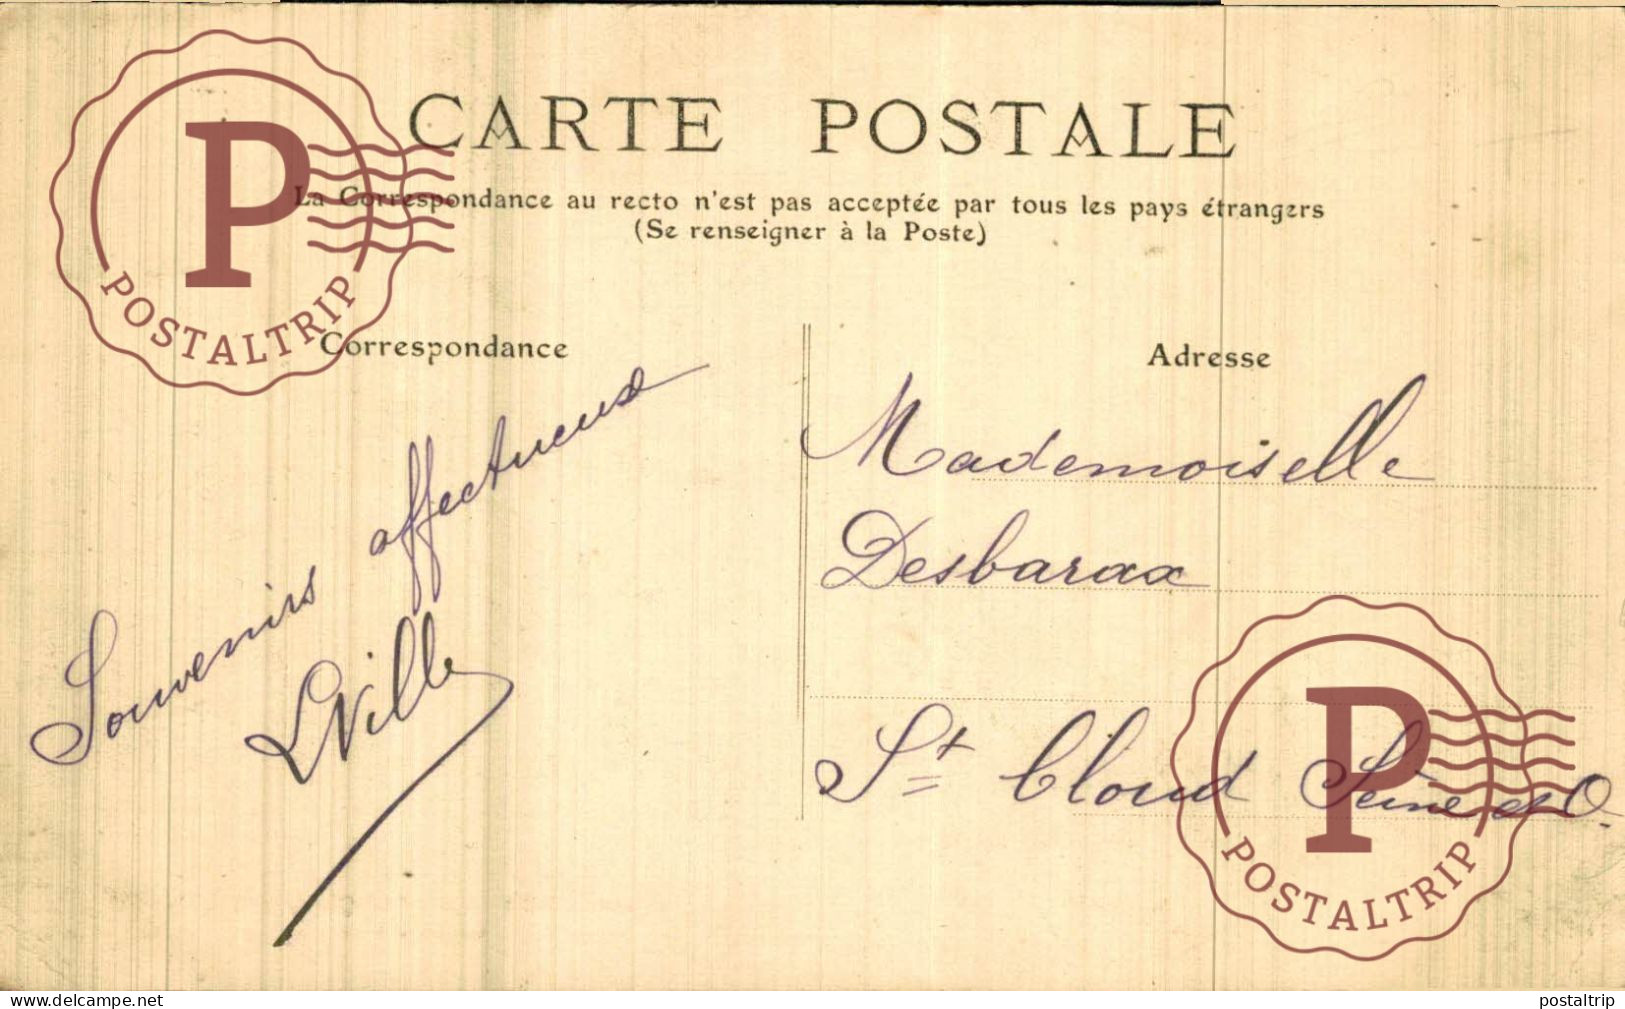 CARTE POSTALE
La Correspondance au recto n'est pas acceptée par tous les pays étrangers
(Se renseigner à la Poste)
Correspondance
Souvenirs affectueux
LVille
Adresse
Mademoiselle
Desbarax
St Cloud Seine et O.
P
POSTALTRIP
P
POSTALTRIP
www.delcampe.net
postaltrip